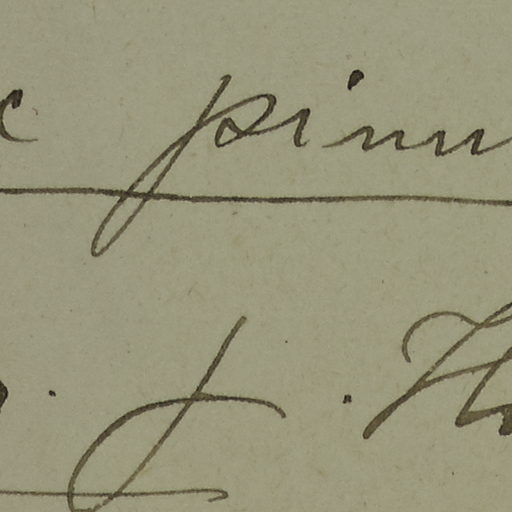 c pinu
. J. H